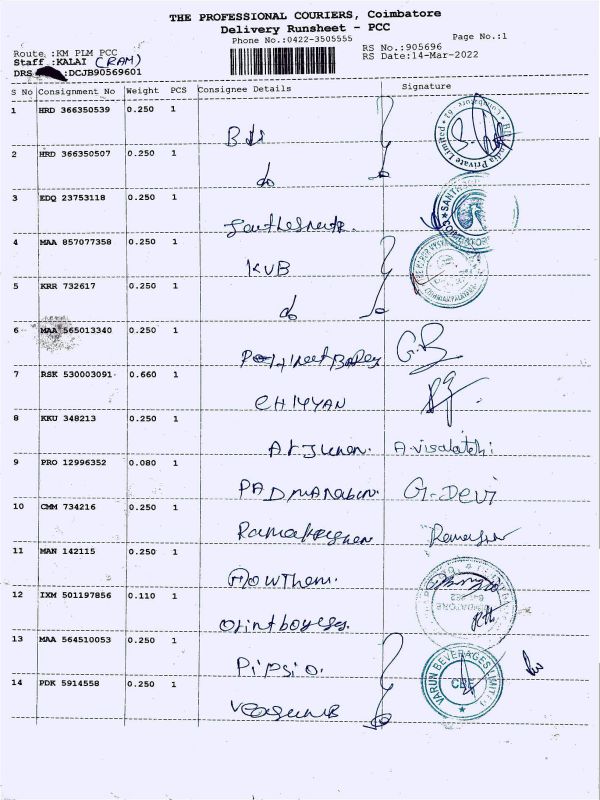 THE PROFESSIONAL COURIERS, Coimbatore
Delivery Runsheet - PCC
Phone No.:0422-3505555
Page No.:1
Route :KM PLM PCC
RS No.:905696
Staff :KALAI (RAM)
RS Date:14-Mar-2022
DRS :DCJB90569601
S No Consignment No Weight PCS Consignee Details Signature
1 HRD 366350539 0.250 1
2 HRD 366350507 0.250 1
do
3 EDQ 23753118 0.250 1
4 MAA 857077358 0.250 1
KVB
5 KRR 732617 0.250 1
do
6 MAA 565013340 0.250 1
G.B
7 RSK 530003091 0.660 1
CHIYYAN
8 KKU 348213 0.250 1
Arjunan. A. Visalatchi
9 PRO 12996352 0.080 1
PADMANABAN. G. Devi
10 CMM 734216 0.250 1
11 MAN 142115 0.250 1
Gowtham.
12 IXM 501197856 0.110 1
13 MAA 564510053 0.250 1
VARUN BEVERAGES LIMITED
CBE
14 PDK 5914558 0.250 1